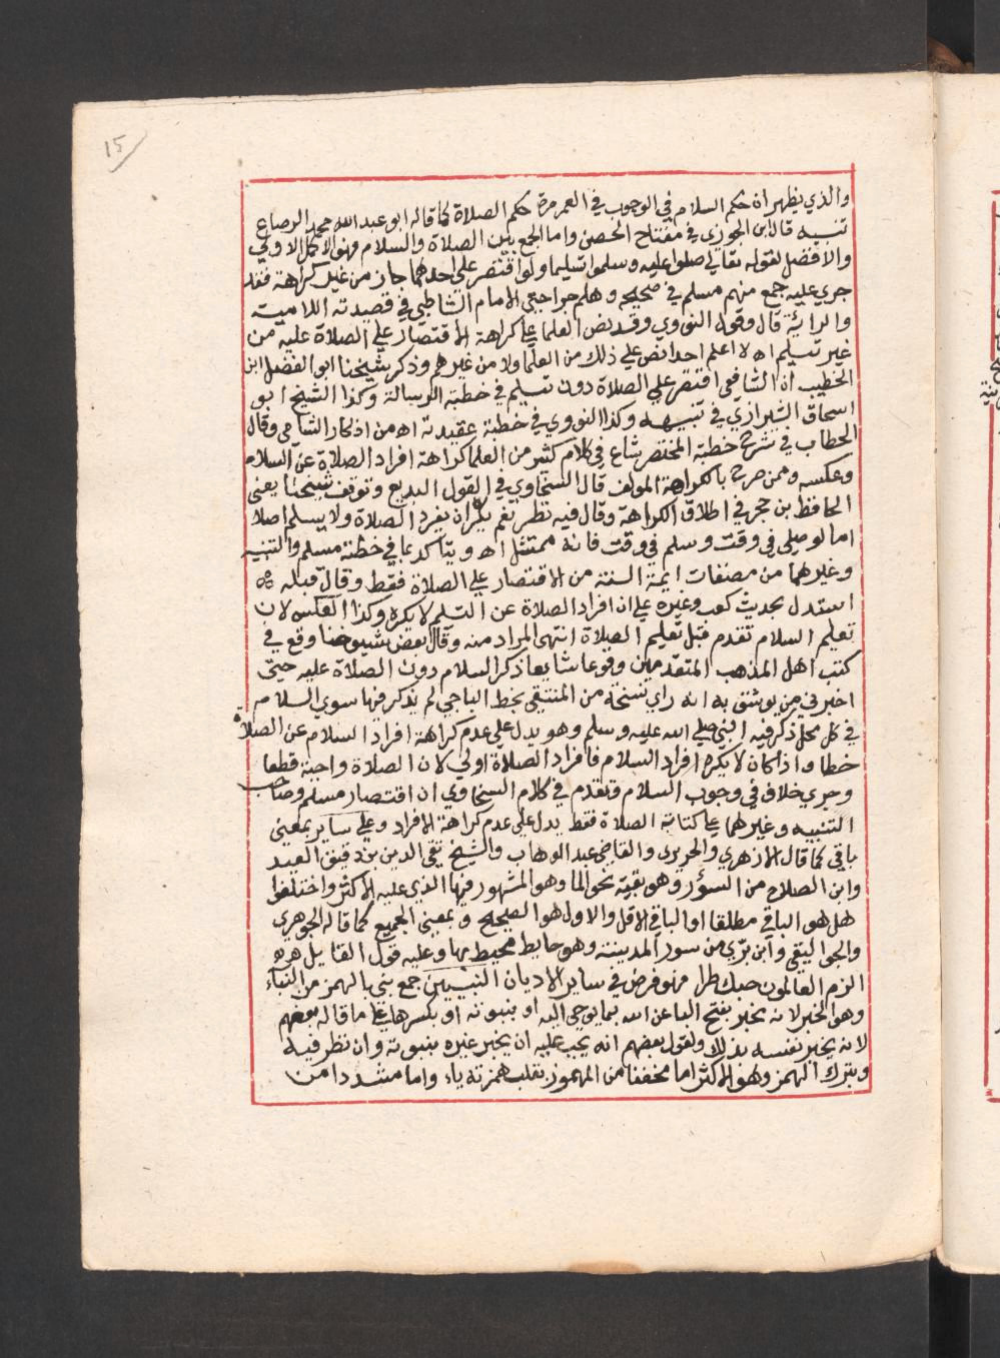 ١٥
والذي يظهر ان حكم السلام في الوجوب في العمر مرة حكم الصلاة كما قاله ابو عبد الله محمد الرصاع
تنبيه قال ابن الجوزي في مفتاح الحصن واما الجمع بين الصلاة والسلام فهو الاكمل الاولي
والافضل لقوله تعالي صلوا عليه وسلموا تسليما ولو اقتصر علي احدهما جاز من غير كراهة فقد
جري عليه جمع منهم مسلم في صحيحه وهلم جرا حتي الامام الشاطبي في قصيدته اللامية
والرائية قال وقول النووي وقد نص العلما علي كراهة الاقتصار علي الصلاة عليه من
غير تسليم اه لا اعلم احدا نص علي ذلك من العلما ولا من غيرهم وذكر شيخنا ابو الفضل ابن
الخطيب ان الشافعي اقتصر علي الصلاة دون تسليم في خطبة الرسالة وكذا الشيخ ابو
اسحاق الشيرازي في تنبيهه وكذا النووي في خطبة عقيدته اه من اذكار الشامي وقال
الحطاب في شرح خطبة المختصر شاع في كلام كثير من العلما كراهة افراد الصلاة عن السلام
وعكسه وممن صرح بالكراهة المولف قال السخاوي في القول البديع وتوقف شيخنا يعني
الحافظ بن حجر في اطلاق الكراهة وقال فيه نظر نعم يكره ان يفرد الصلاة ولا يسلم اصلا
اما لو صلي في وقت وسلم في وقت فانه ممتثل اه ويتاكد بما في خطبة مسلم والتنبيه
وغيرهما من مصنفات ايمة السنة من الاقتصار علي الصلاة فقط وقال قبله
استدل بحديث كعب وغيره علي ان افراد الصلاة عن التسليم لا يكره وكذا العكس لان
تعليم السلام تقدم قبل تعليم الصلاة انتهي المراد منه وقال بعض شيوخنا وقع في
كتب اهل المذهب المتقدمين وقوعا شايعا ذكر السلام دون الصلاة عليه حتي
اخبرني من يوثق به انه راي نسخة من المنتقي بخط الباجي لم يذكر فيها سوي السلام
في كل محل ذكر فيه النبي صلي الله عليه وسلم وهو يدل علي عدم كراهة افراد السلام عن الصلاة
خطا واذا كان لا يكره افراد السلام فافراد الصلاة اولي لان الصلاة واجبة قطعا
وجري خلاف في وجوب السلام وتقدم في كلام السخاوي ان اقتصار مسلم وصاحب
التنبيه وغيرهما علي كتابة الصلاة فقط يدل علي عدم كراهة الافراد وعلي ساير بمعني
باقي كما قال الازهري والحريري والقاضي عبد الوهاب والشيخ تقي الدين بن دقيق العيد
وابن الصلاح من السؤر وهو بقية نحو الما وهو المشهور فيها الذي عليه الاكثر واختلفوا
هل هو الباقي مطلقا او الباقي الاقل والاول هو الصحيح وبمعني الجميع كما قاله الجوهري
والجواليقي وابن بري من سور المدينة وهو حايط محيط بها وعليه قول القايل
الزم العالمون حبك طرا فهو فرض في ساير الاديان النبيين جمع نبي بالهمز من النباء
وهو الخبر لانه يخبر بفتح البا عن الله بما يوحي اليه او بنبوته او بكسرها علي ما قاله بعضهم
لانه يخبر نفسه بذلك ولقول بعضهم انه يجب عليه ان يخبر غيره بنبوته وان نظر فيه
وبترك الهمز وهو الاكثر اما مخففا من المهموز بقلب همزته ياء واما مشددا من